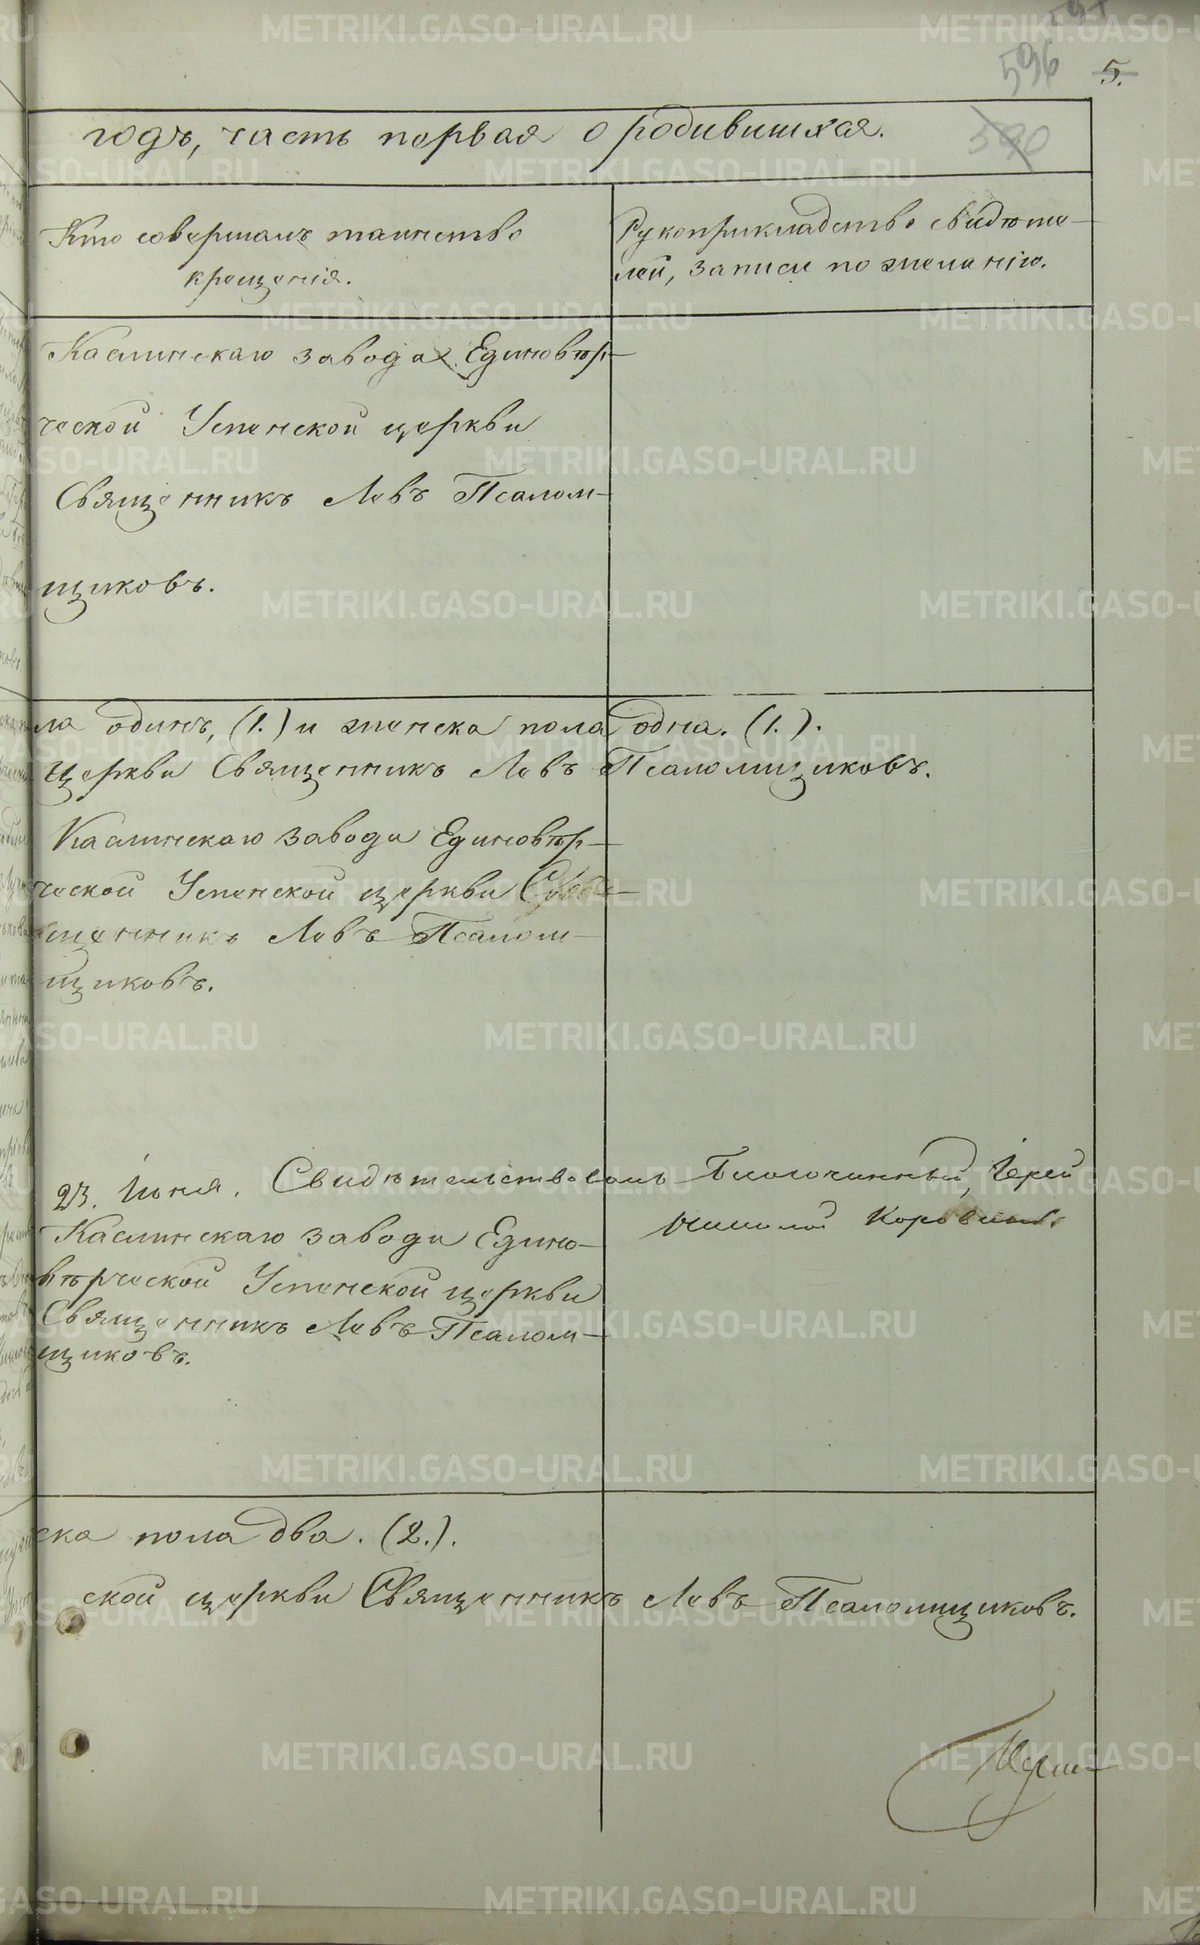 596
5.
590
годъ, часть первая о родившихся.
Кто совершалъ таинство
крещенія.
Рукоприкладство свидѣте-
лей, записи по желанію.
Каслинскаго завода Единовѣр-
ческой Успенской церкви
Священникъ Левъ Псалом-
щиковъ.
ла одинъ, (1.) и женска пола одна. (1.).
Церкви Священникъ Левъ Псаломщиковъ.
Каслинскаго завода Единовѣр-
ческой Успенской церкви Свя-
щенникъ Левъ Псалом-
щиковъ.
23. Іюня. Свидѣтельствовалъ Благочинный, Іерей
Коровинъ.
Каслинскаго завода Едино-
вѣрческой Успенской церкви
Священникъ Левъ Псалом-
щиковъ.
ска пола два. (2.).
ской церкви Священникъ Левъ Псаломщиковъ.
METRIKI.GASO-URAL.RU